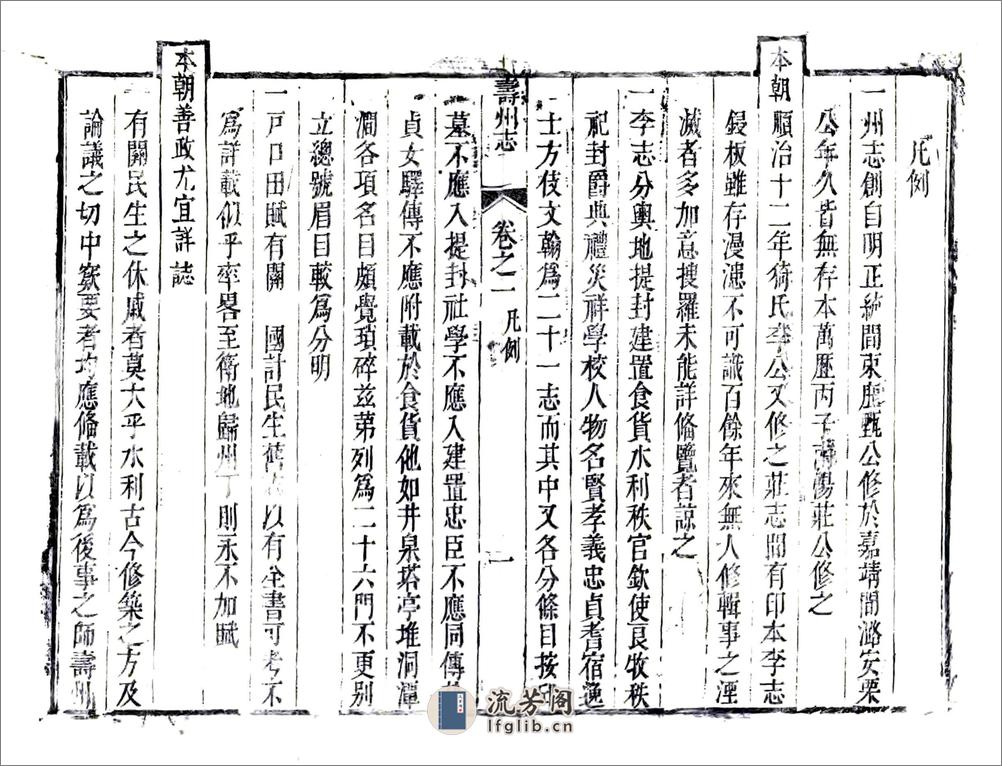 凡例
一州志創自明正統間束鹿甄公修於嘉靖間潞安栗
公年久皆無存本萬歷丙子 莊公修之
本朝順治十二年猗氏李公又修之莊志間有印本李志
鋟板雖存漫漶不可識百餘年來無人修輯事之湮
滅者多加意搜羅未能詳備覽者諒之
一李志分輿地提封建置食貨水利秩官欽使良牧秩
祀封爵典禮災祥學校人物名賢孝義忠貞耆宿逸
士方伎文翰為二十一志而其中又各分條目按
壽州志 卷之一 凡例 一
墓不應入提封社學不應入建置忠臣不應同傳
貞女驛傳不應附載於食貨他如井泉塔亭堆洞潭
澗各項名目頗覺瑣碎兹第列為二十六門不更別
立總號眉目較為分明
一戸口田賦有關 國計民生舊 以有全書可考不
為詳載似乎率畧至衛地歸州丁則永不加賦
本朝善政尤宜詳誌
有關民生之休戚者莫大乎水利古今修築之方及
論議之切中窾要者均應備載以為後事之師壽州
流芳阁
lfglib.cn